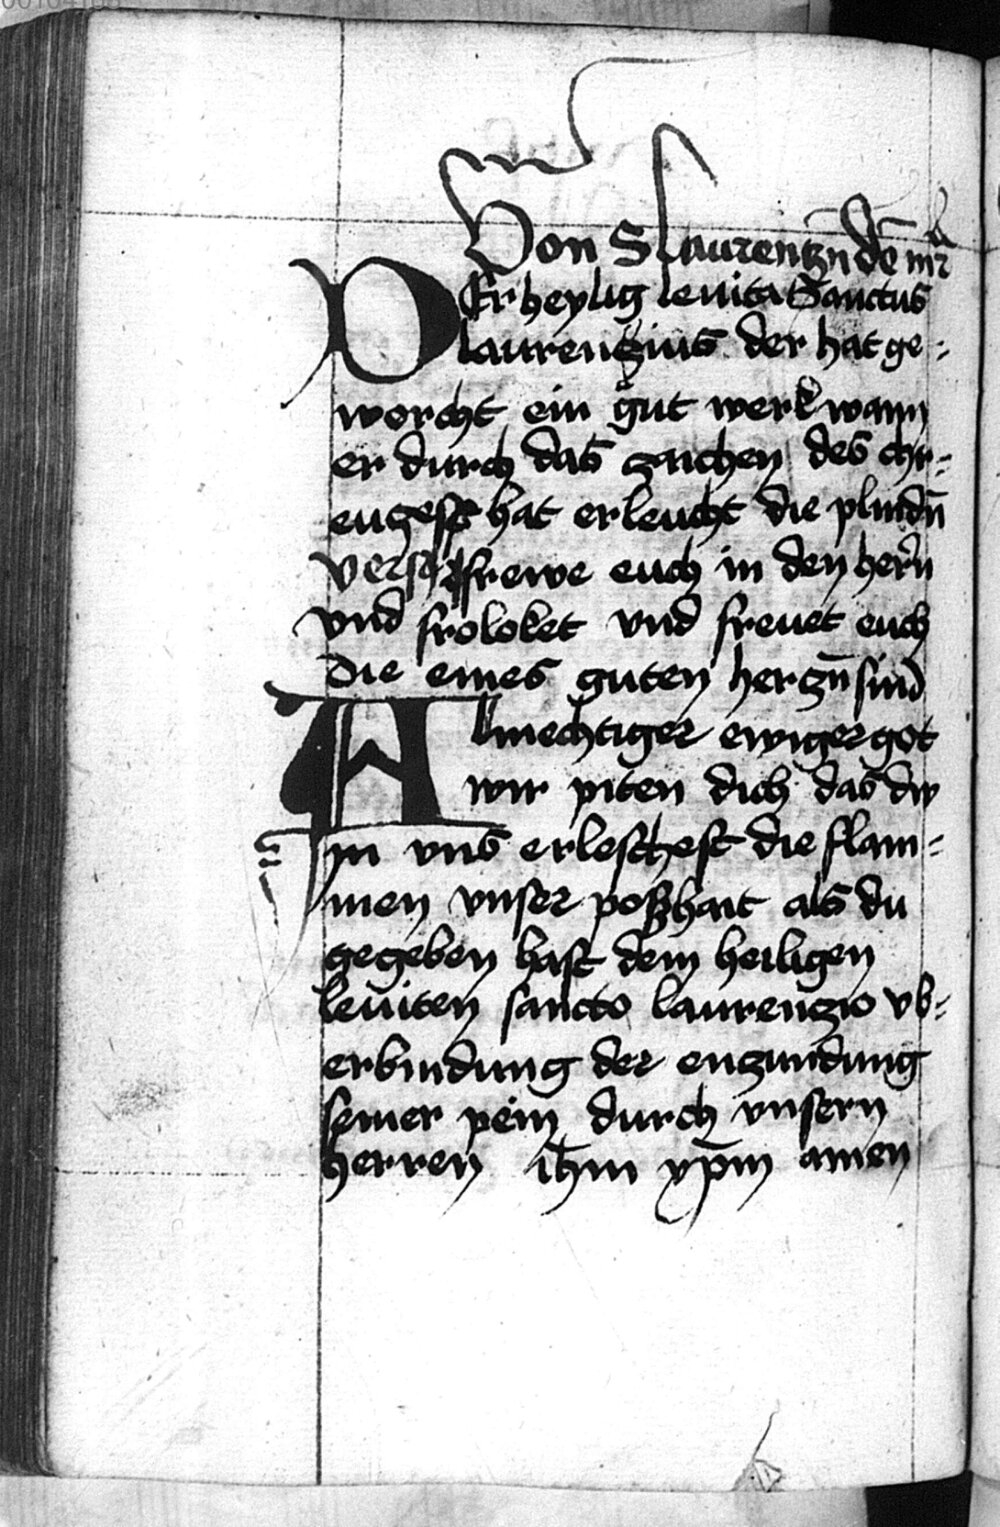 Von S laurenczn dē mr̄
DEr heylig leuita Sanctus
laurenczius der hat ge-
worcht ein gut werk wann
er durch das zaichen des chr-
eugecz hat erleucht die plindn̄
vers frewe euch in den hern̄
vnd froloket vnd frewet euch
die eines guten herczn̄ sind
Almechtiger ewiger got
wir piten dich das dw
in vns erleschest die flam-
men vnser poßhait als du
gegeben hast dem heiligen
leuiten sancto laurenczio vb-
erbindung der enczundung
seiner pein durch vnsern
herren ih̄m xp̄m amen